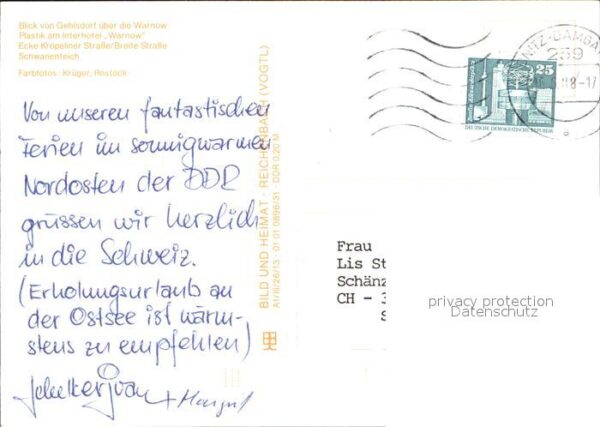 Blick von Gehlsdorf über die Warnow
Plastik am Interhotel „Warnow"
Ecke Kröpeliner Straße/Breite Straße
Schwanenteich
Farbfotos: Krüger, Rostock
Von unseren fantastischen
Ferien im sonnigwarmen
Nordosten der DDR
grüssen wir herzlich
in die Schweiz.
(Erholungsurlaub an
der Ostsee ist wärm-
stens zu empfehlen)
+ Margrit
BILD UND HEIMAT · REICHENBACH (VOGTL)
A1/III/26/13 · 01 01 0896/31 · DDR 0,20 M
NITZ-DAMGA
259
88-17
a
25
DEUTSCHE DEMOKRATISCHE REPUBLIK
Frau
Lis St
Schänz
CH - 3
S
privacy protection
Datenschutz